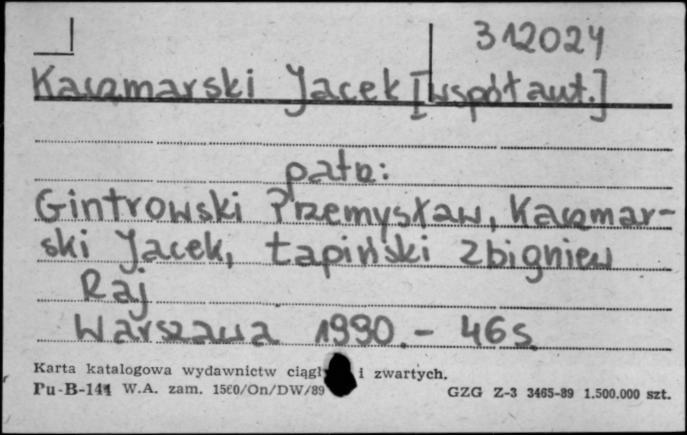 312024
Kaczmarski Jacek [współaut.]
patrz:
Gintrowski Przemysław, Kaczmar-
ski Jacek, Łapiński Zbigniew
Raj
Warszawa 1990. - 46 s.
Karta katalogowa wydawnictw i zwartych.
Pu-B-144 W.A. zam. 1560/On/DW/89
GZG Z-3 3465-89 1.500.000 szt.